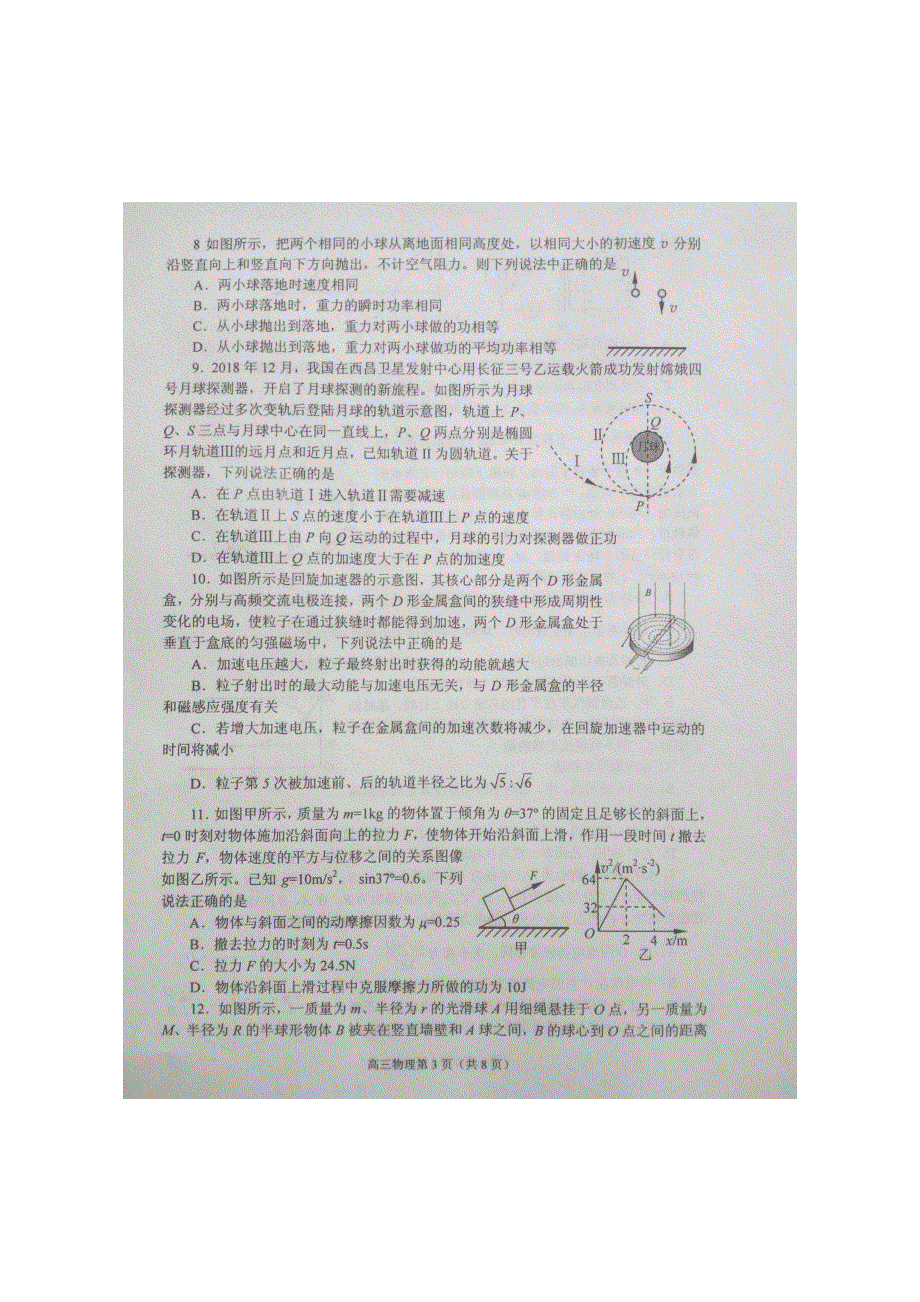 8 如图所示，把两个相同的小球从离地面相同高度处，以相同大小的初速度 v 分别
沿竖直向上和竖直向下方向抛出，不计空气阻力。则下列说法中正确的是
A．两小球落地时速度相同
B．两小球落地时，重力的瞬时功率相同
C．从小球抛出到落地，重力对两小球做的功相等
D．从小球抛出到落地，重力对两小球做功的平均功率相等
v
v
9．2018 年 12 月，我国在西昌卫星发射中心用长征三号乙运载火箭成功发射嫦娥四
号月球探测器，开启了月球探测的新旅程。如图所示为月球
探测器经过多次变轨后登陆月球的轨道示意图，轨道上 P、
Q、S 三点与月球中心在同一直线上，P、Q 两点分别是椭圆
环月轨道Ⅲ的远月点和近月点，已知轨道Ⅱ为圆轨道。关于
探测器，下列说法正确的是
A．在 P 点由轨道Ⅰ进入轨道Ⅱ需要减速
B．在轨道Ⅱ上 S 点的速度小于在轨道Ⅲ上 P 点的速度
C．在轨道Ⅲ上由 P 向 Q 运动的过程中，月球的引力对探测器做正功
D．在轨道Ⅲ上 Q 点的加速度大于在 P 点的加速度
S
Q
Ⅱ
月球
Ⅰ
Ⅲ
P
10．如图所示是回旋加速器的示意图，其核心部分是两个 D 形金属
盒，分别与高频交流电极连接，两个 D 形金属盒间的狭缝中形成周期性
变化的电场，使粒子在通过狭缝时都能得到加速，两个 D 形金属盒处于
垂直于盒底的匀强磁场中，下列说法中正确的是
A．加速电压越大，粒子最终射出时获得的动能就越大
B．粒子射出时的最大动能与加速电压无关，与 D 形金属盒的半径
和磁感应强度有关
C．若增大加速电压，粒子在金属盒间的加速次数将减少，在回旋加速器中运动的
时间将减小
D．粒子第 5 次被加速前、后的轨道半径之比为 √5 : √6
B
11．如图甲所示，质量为 m=1kg 的物体置于倾角为 θ=37º 的固定且足够长的斜面上，
t=0 时刻对物体施加沿斜面向上的拉力 F，使物体开始沿斜面上滑，作用一段时间 t 撤去
拉力 F，物体速度的平方与位移之间的关系图像
如图乙所示。已知 g=10m/s²， sin37º=0.6。下列
说法正确的是
A．物体与斜面之间的动摩擦因数为 μ=0.25
B．撤去拉力的时刻为 t=0.5s
C．拉力 F 的大小为 24.5N
D．物体沿斜面上滑过程中克服摩擦力所做的功为 10J
F
θ
甲
v²/(m²·s⁻²)
64
32
O
2
4
x/m
乙
12．如图所示，一质量为 m、半径为 r 的光滑球 A 用细绳悬挂于 O 点，另一质量为
M、半径为 R 的半球形物体 B 被夹在竖直墙壁和 A 球之间，B 的球心到 O 点之间的距离
高三物理第 3 页（共 8 页）